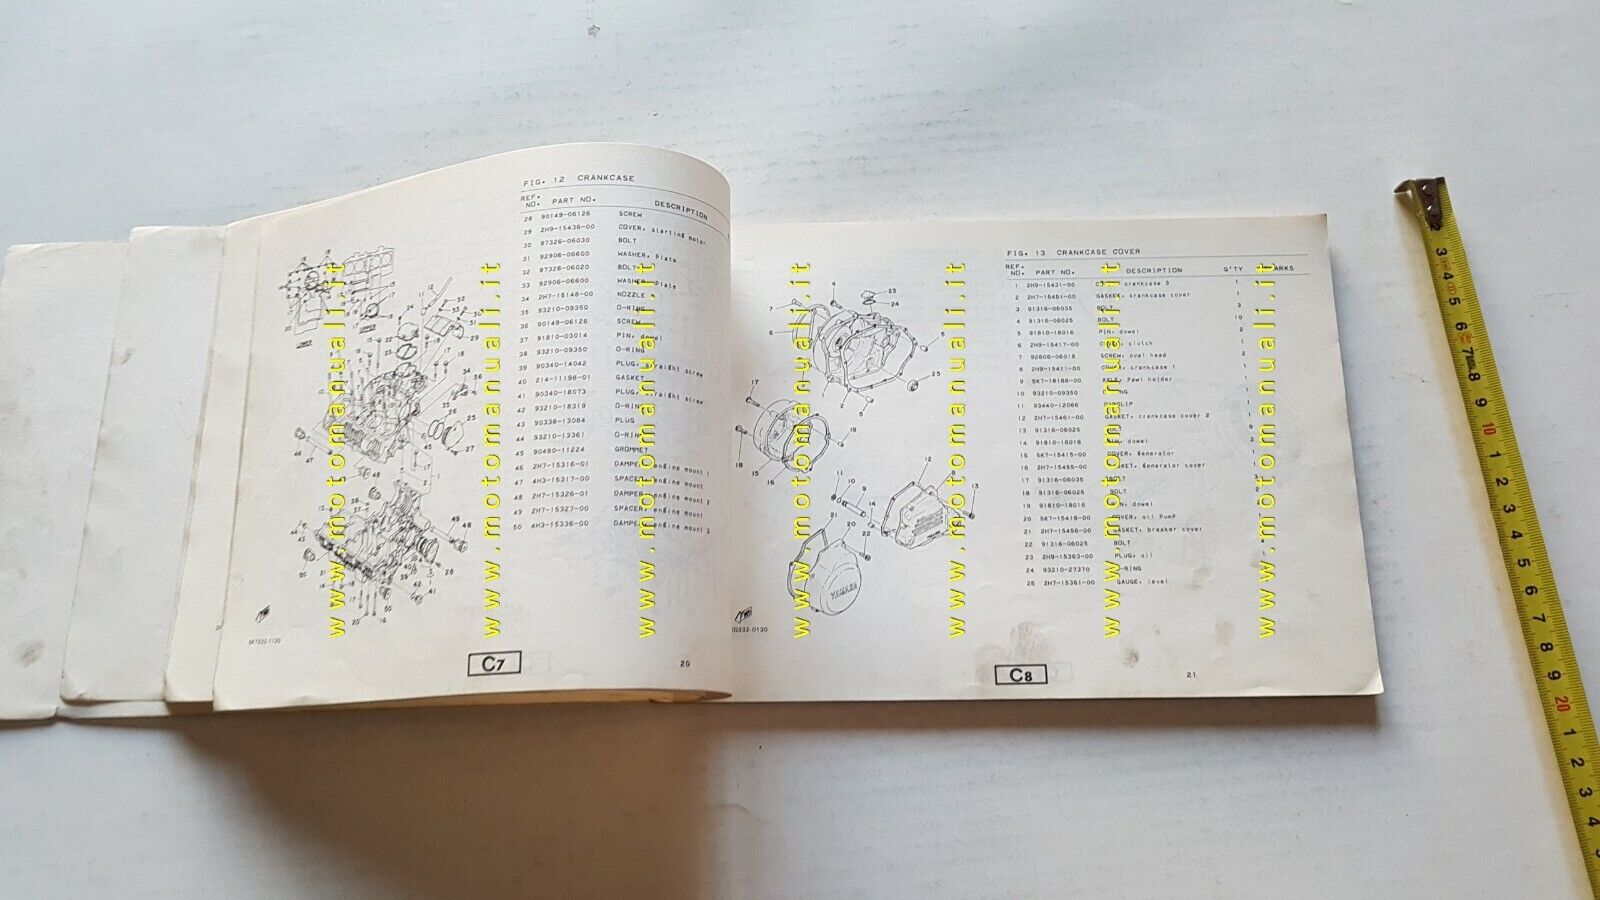 FIG. 12 CRANKCASE
REF. NO. PART NO. DESCRIPTION
28 90149-06126 SCREW
29 2H9-15436-00 COVER, starting motor
30 97326-06030 BOLT
31 92906-06600 WASHER, Plate
32 97326-06020 BOLT
33 92906-06600 WASHER, Plate
34 2H7-15148-00 NOZZLE
35 93210-09350 O-RING
36 90149-06126 SCREW
37 91810-03014 PIN, dowel
38 93210-09350 O-RING
39 90340-14042 PLUG, straight screw
40 214-11198-01 GASKET
41 90340-18073 PLUG, straight screw
42 93210-18319 O-RING
43 90338-13084 PLUG
44 93210-13361 O-RING
45 90480-11224 GROMMET
46 2H7-15316-01 DAMPER, engine mount 1
47 4H3-15317-00 SPACER, engine mount
48 2H7-15326-01 DAMPER, engine mount 2
49 2H7-15327-00 SPACER, engine mount
50 4H3-15336-00 DAMPER, engine mount 3
C7
20
FIG. 13 CRANKCASE COVER
REF. NO. PART NO. DESCRIPTION Q'TY
1 2H9-15431-00 crankcase 3 1
2 2H7-15451-00 GASKET, crankcase cover 1
3 91316-06035 BOLT 3
4 91316-06025 BOLT 10
5 91810-18016 PIN, dowel 2
6 2H9-15417-00 clutch 1
7 92606-06018 SCREW, oval head 2
8 2H9-15411-00 COVER, crankcase 1 1
9 5K7-18188-00 AXLE, Pawl holder 1
10 93210-09350
11 93440-12066 CIRCLIP
12 2H7-15461-00 GASKET, crankcase cover 2
13 91316-06025 BOLT
14 91810-18016 PIN, dowel
15 5K7-15415-00 COVER, Generator
16 2H7-15455-00 GASKET, Generator cover
17 91316-06035 BOLT
18 91316-06025 BOLT
19 91810-18016 dowel
20 5K7-15416-00 COVER, oil PumP
21 2H7-15456-00 GASKET, breaker cover
22 91316-06025 BOLT
23 2H9-15363-00 PLUG, oil
24 93210-27370 O-RING
25 2H7-15361-00 GAUGE, level
YAMAHA
10332-0130
C8
21
www.motomanuali.it
www.motomanuali.it
www.motomanuali.it
www.motomanuali.it
www.motomanuali.it
www.motomanuali.it
www.motomanuali.it